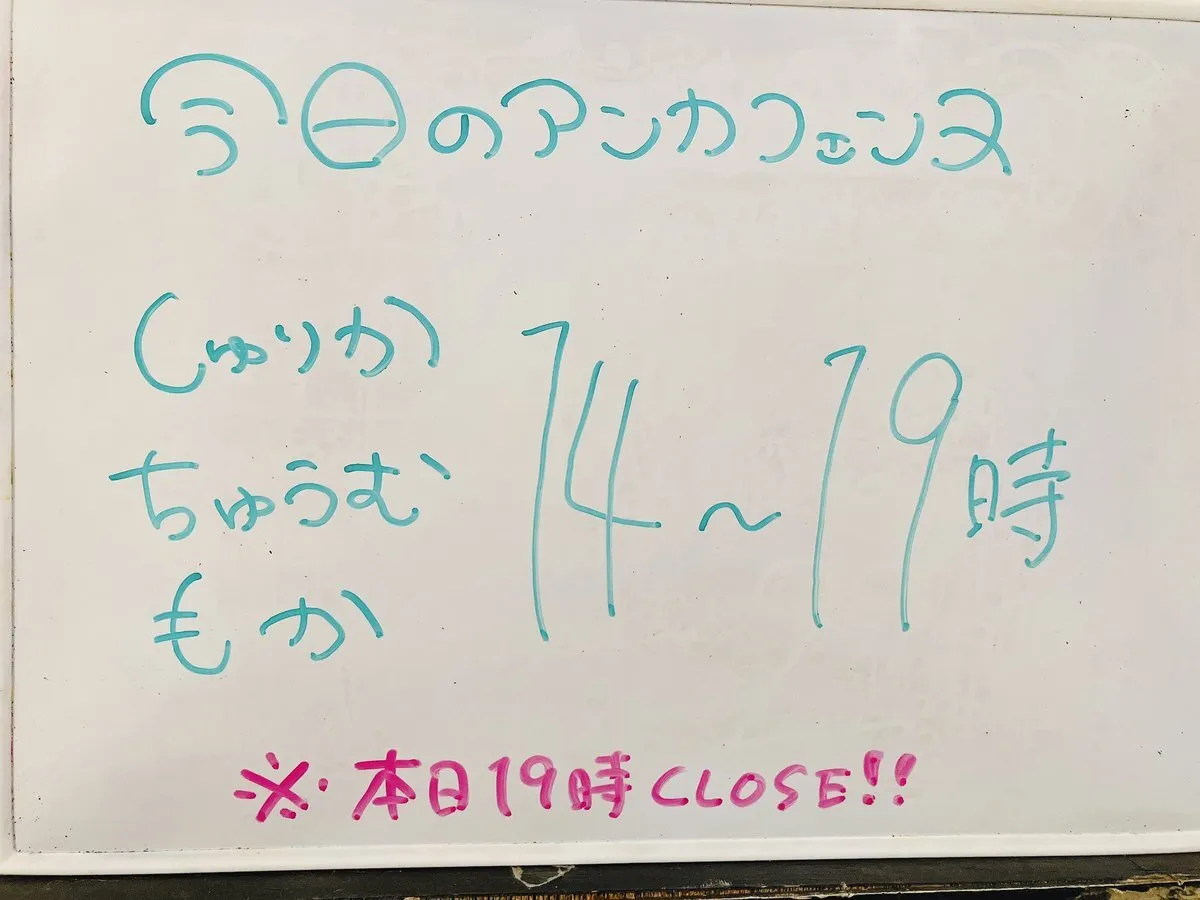 今日のアンカフェンヌ
しゅりか
ちゅうむ
もか
14〜19時
※本日19時CLOSE!!